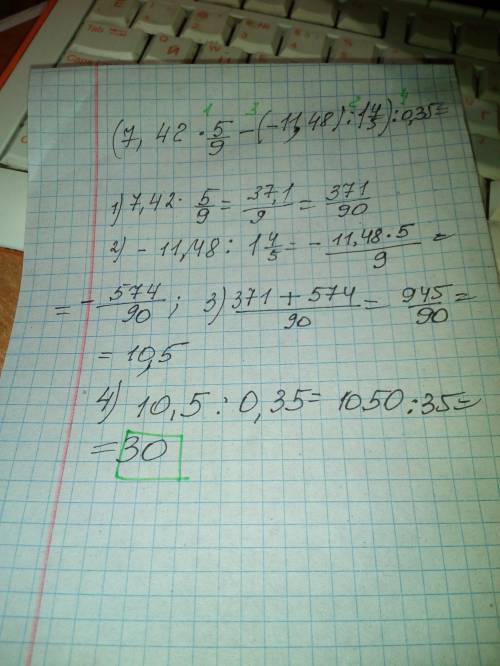 1 3 2 4
(7,42 · 5/9 - (-11,48) : 1 4/5) : 0,35 =
1) 7,42 · 5/9 = 37,1/9 = 371/90
2) - 11,48 : 1 4/5 = - 11,48 · 5/9 =
= - 574/90 ; 3) 371 + 574/90 = 945/90 =
= 10,5
4) 10,5 : 0,35 = 1050 : 35 =
= 30